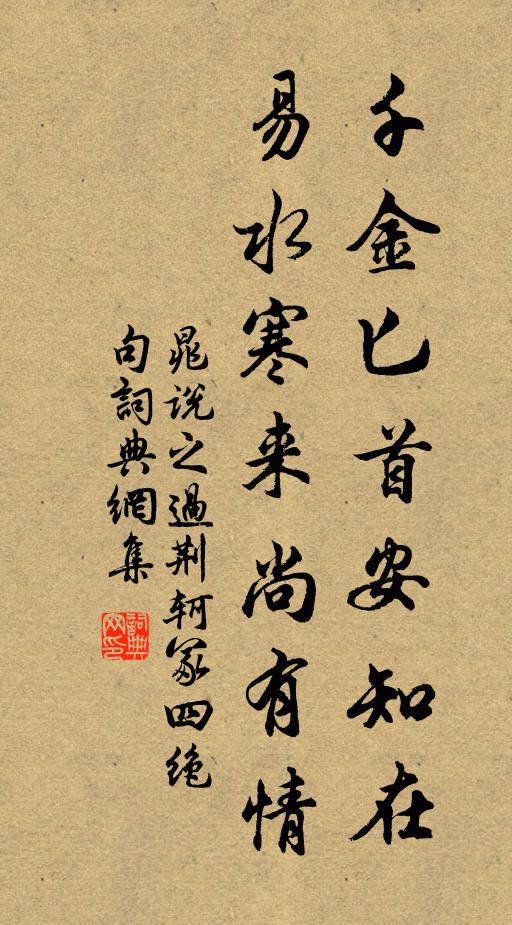 千金匕首安知在
易水寒来尚有情
晁说之過荆軻冢四绝
句詞典網集
詞典網印